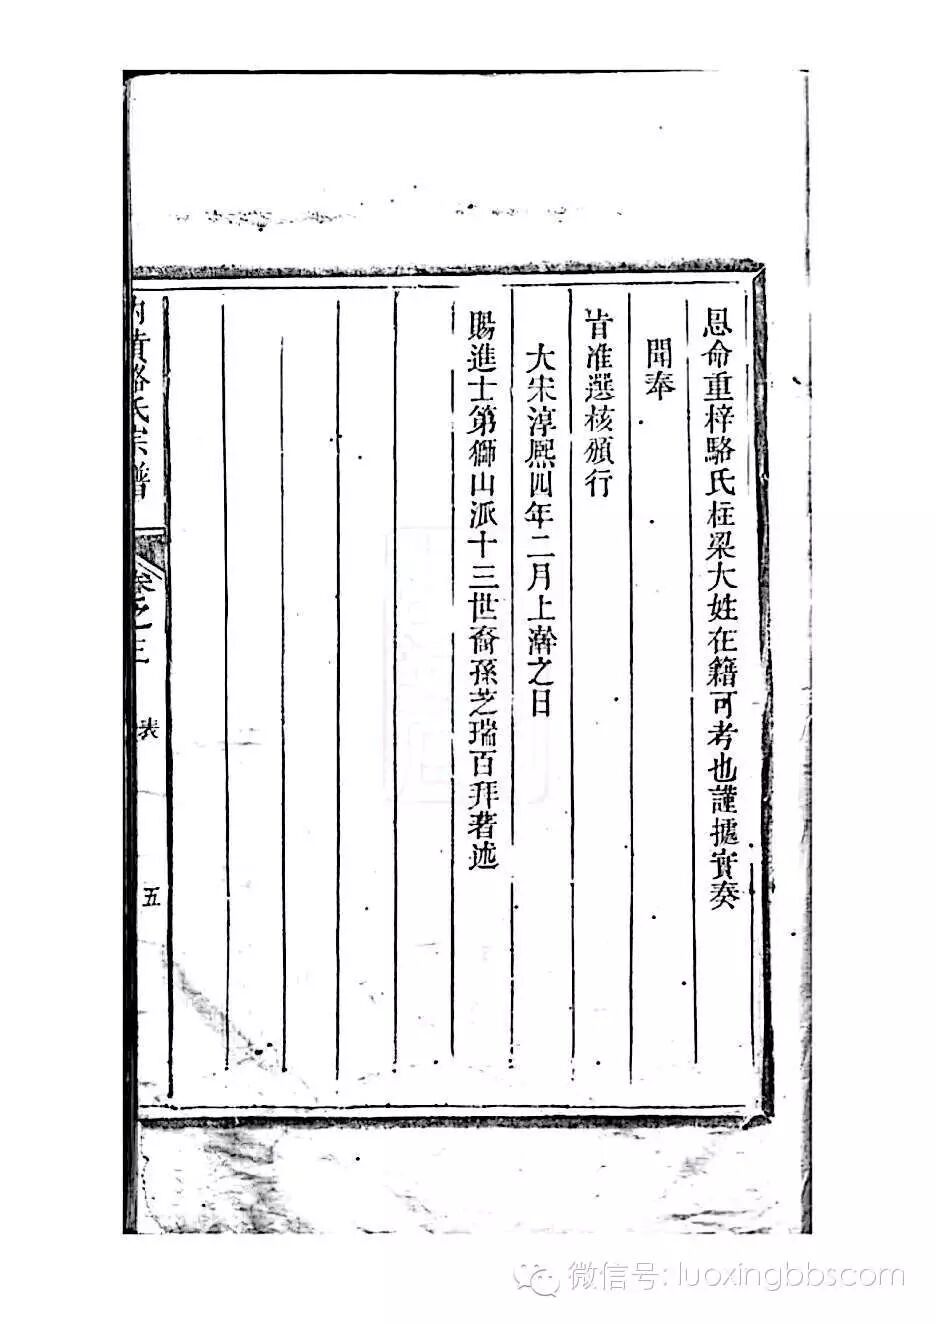 恩命重梓駱氏柱梁大姓在籍可考也謹據實奏
聞奉
旨准選核頒行
大宋淳熙四年二月上澣之日
賜進士第獅山派十三世裔孫芝瑞百拜著述
黄駱氏宗譜 卷之三 表 五
微信号: luoxingbbscom